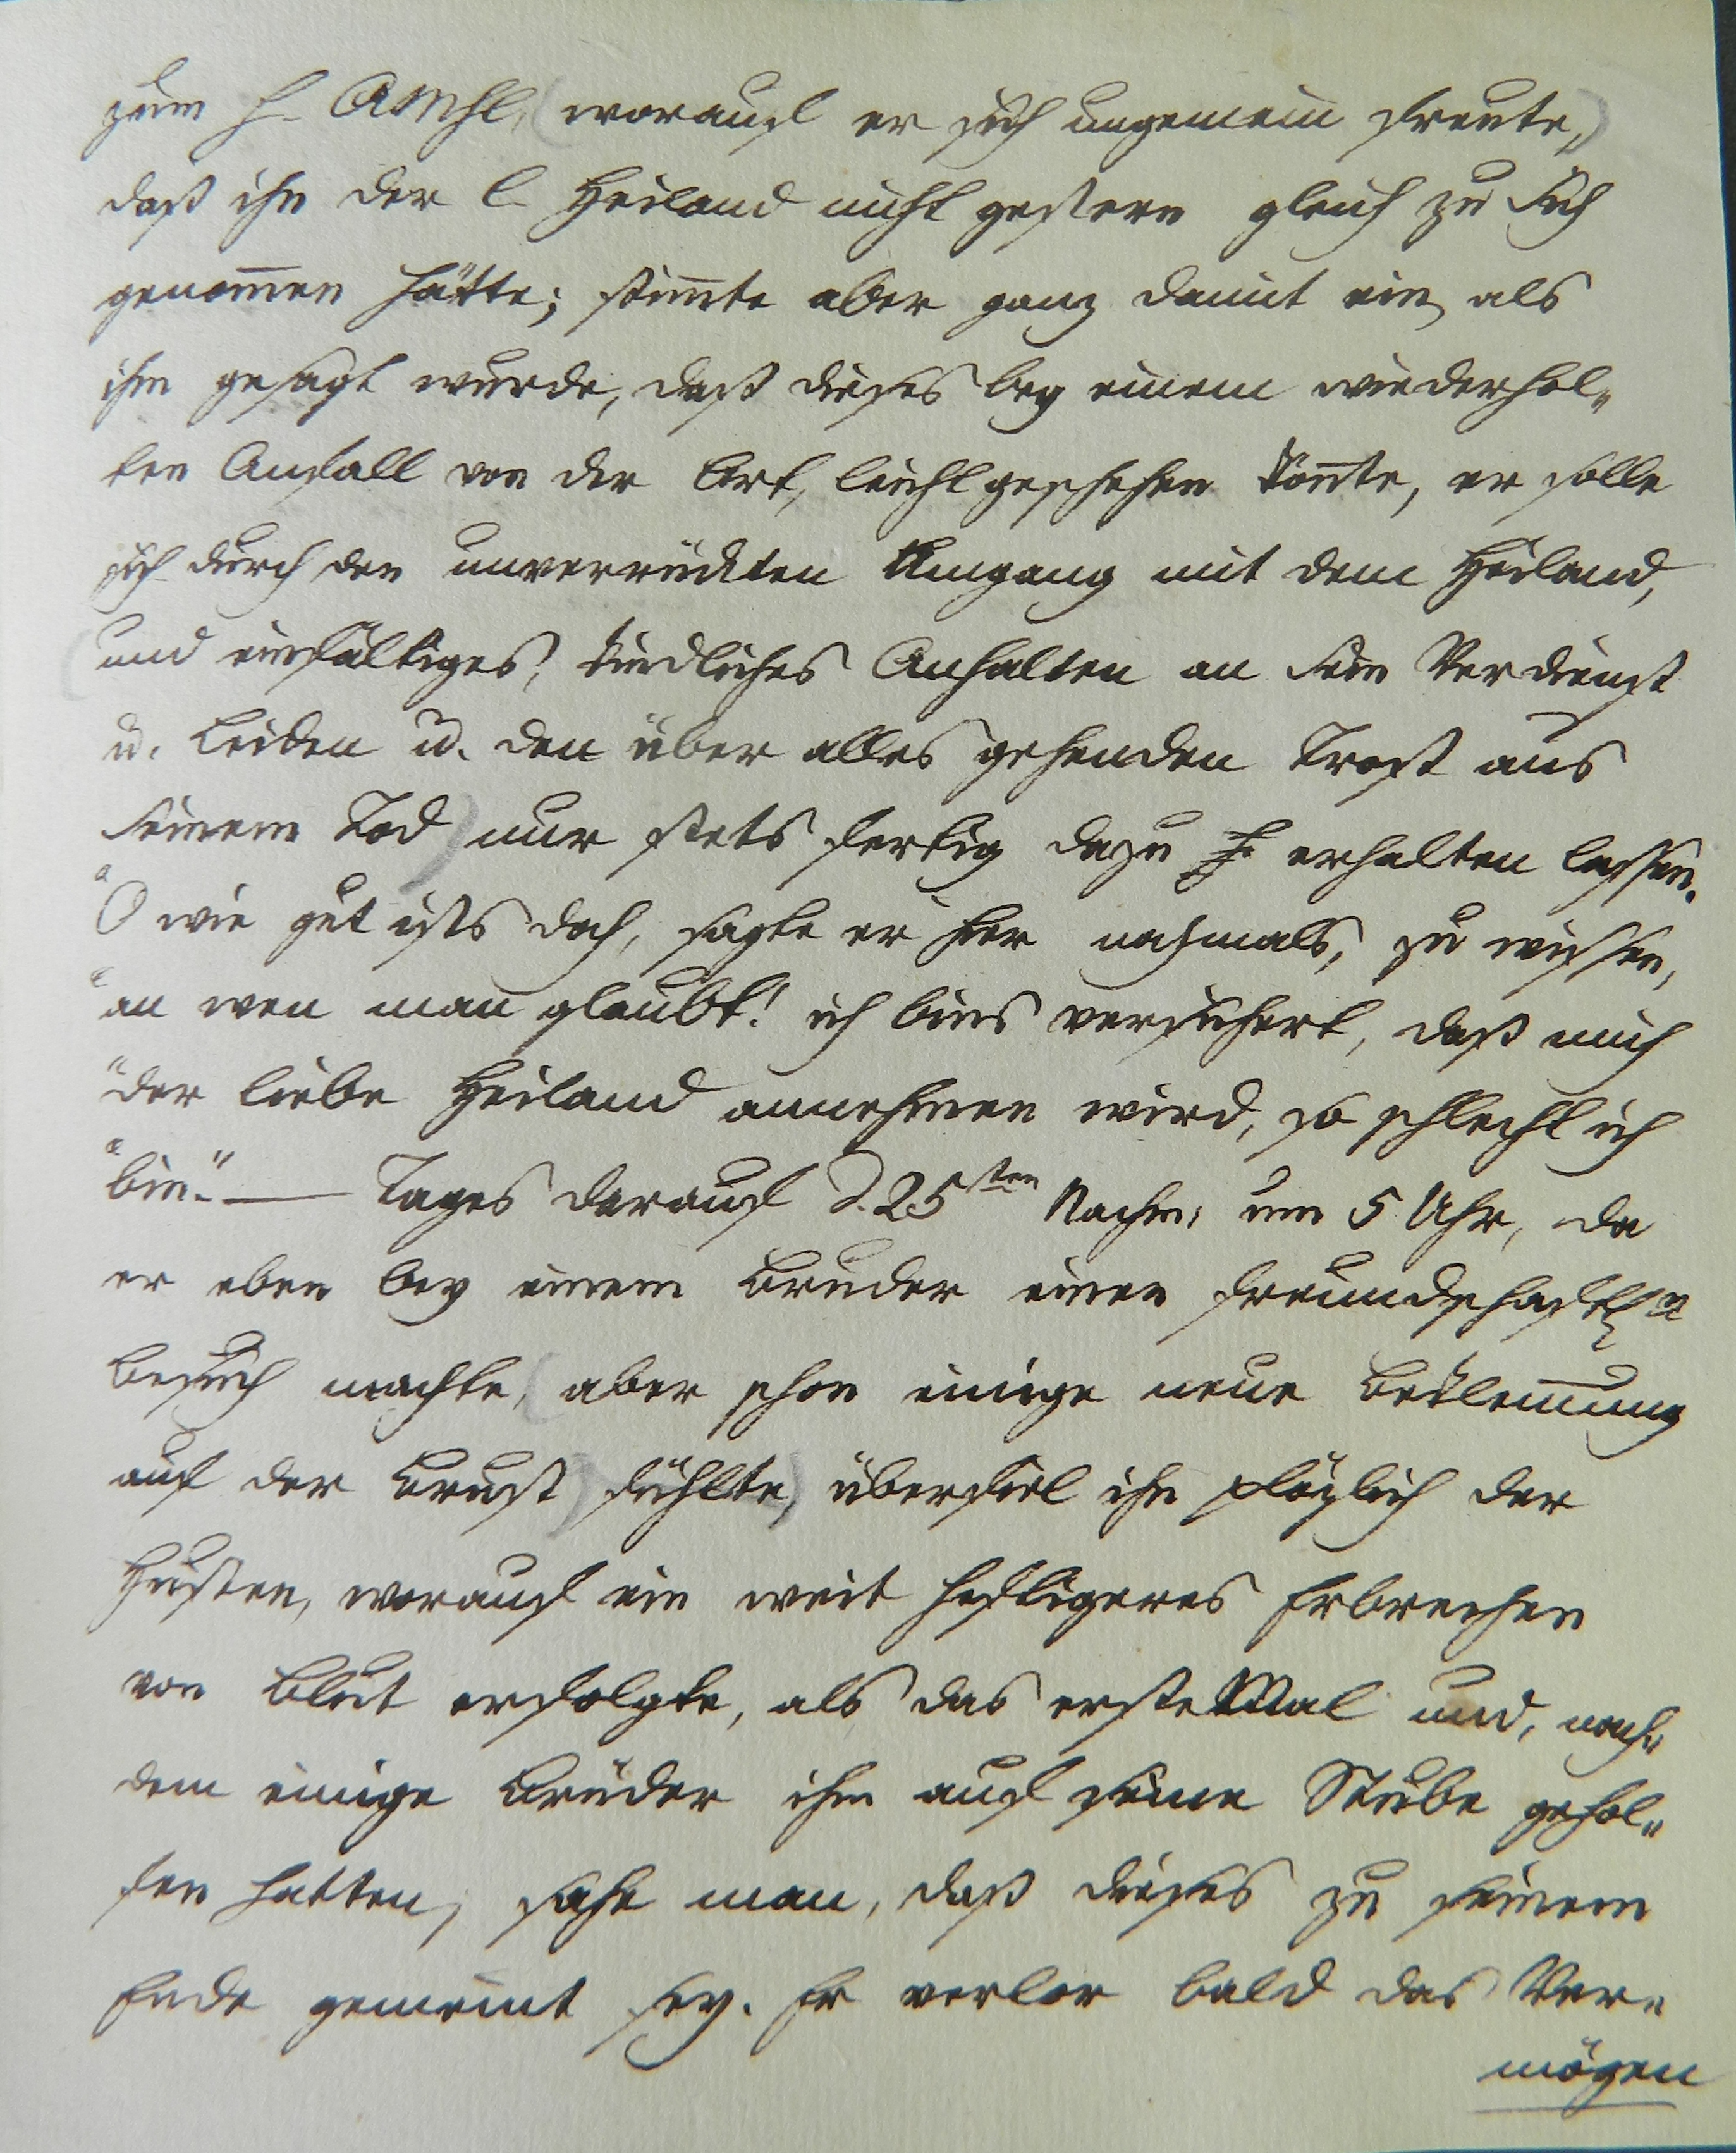 zum H. Abmhl, (worauf er sich ungemein freute,)
daß ihn der l. Heiland nicht gestern gleich zu Sich
genom̄en hätte; stim̄te aber ganz damit ein, als
ihm gesagt wurde, daß dieses bey einem wiederhol„
ten Anfall von der Art, leicht geschehen kön̄te, er solle
sich durch den unverrückten Umgang mit dem Heiland,
(und einfältiges, kindliches Anhalten an Sein Verdienst
u. Leiden u. den über alles gehenden Trost aus
Seinem Tod) nur stets fertig dazu erhalten lassen.
"O wie gut ists doch, sagte er hier nochmals, zu wissen,
"an wen man glaubt! ich bins versichert, daß mich
"der liebe Heiland annehmen wird, so schlecht ich
"bin." — Tages darauf d. 25sten Nachm: um 5 Uhr, da
er eben bey einem Bruder einen freundschaftln
Besuch machte, (aber schon einige neue Beklem̄ung
auf der Brust) fühlte, überfiel ihn plözlich der
Husten, worauf ein weit heftigeres Erbrechen
von Blut erfolgte, als das erste Mal und, nach„
dem einige Brüder ihm auf seine Stube gehol„
fen hatten, sahe man, daß dieses zu seinem
Ende gemeint sey. Er verlor bald das Ver„
mögen